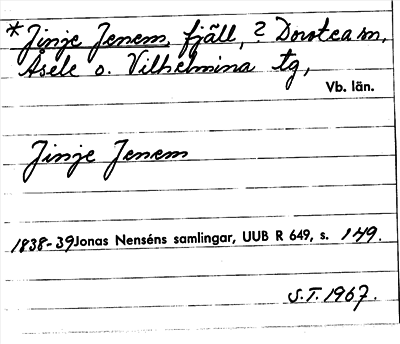 *Jinje Jenem, fjäll, ? Dorotea sn,
Åsele o. Vilhelmina tg,
Vb. län.
Jinje Jenem
1838-39 Jonas Nenséns samlingar, UUB R 649, s. 149.
S.T. 1967.